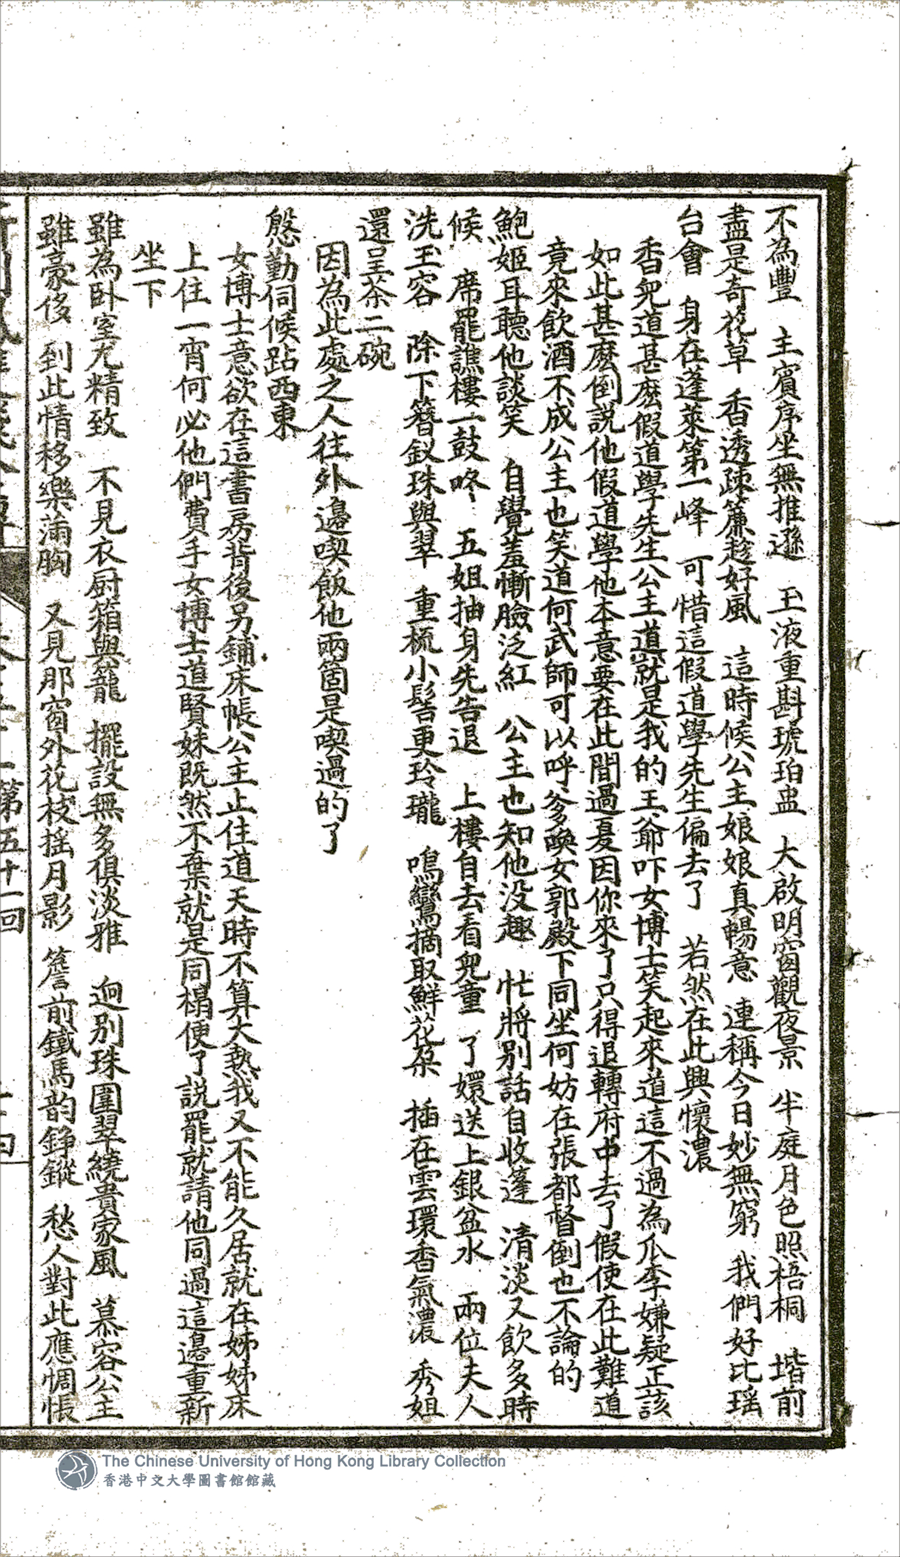 不為豐　主賓序坐無推遜　玉液重斟琥珀盅　大啟明窗觀夜景　半庭月色照梧桐　堦前
盡是奇花草　香透疎簾趁好風　這時候公主娘娘真暢意　連稱今日妙無窮　我們好比瑶
台會　身在蓬萊第一峰　可惜這假道學先生偏去了　若然在此興懷濃
香兒道甚麽假道學先生公主道就是我的王爺吓女博士笑起來道這不過為瓜李嫌疑正該
如此甚麽倒説他假道學他本意要在此間過夏因你來了只得退轉府中去了假使在此難道
竟來飲酒不成公主也笑道何武師可以呼爹喚女郭殿下同坐何妨在張都督倒也不論的
鮑姬耳聽他談笑　自覺羞慚臉泛紅　公主也知他没趣　忙將别話自收蓬　清淡又飲多時
候　席罷譙樓一鼓咚　五姐抽身先告退　上樓自去看兒童　了嬛送上銀盆水　兩位夫人
洗玉容　除下簪釵珠與翠　重梳小髻更玲瓏　鳴鸞摘取鮮花朶　插在雲環香氣濃　秀姐
還呈茶二碗
因為此處之人往外邊喫飯他兩箇是喫過的了
慇勤伺候跕西東
女博士意欲在這書房背後另鋪床帳公主止住道天時不算大熱我又不能久居就在姊姊床
上住一宵何必他們費手女博士道賢妹既然不棄就是同榻便了説罷就請他同過這邊重新
坐下
雖為卧室尤精致　不見衣厨箱與籠　擺設無多俱淡雅　迥别珠圍翠繞貴家風　慕容公主
雖豪侈　到此情移樂滿胸　又見那窗外花枝摇月影　簷前鐵馬韵錚鏦　愁人對此應惆悵
第五十一回
The Chinese University of Hong Kong Library Collection
香港中文大學圖書館館藏